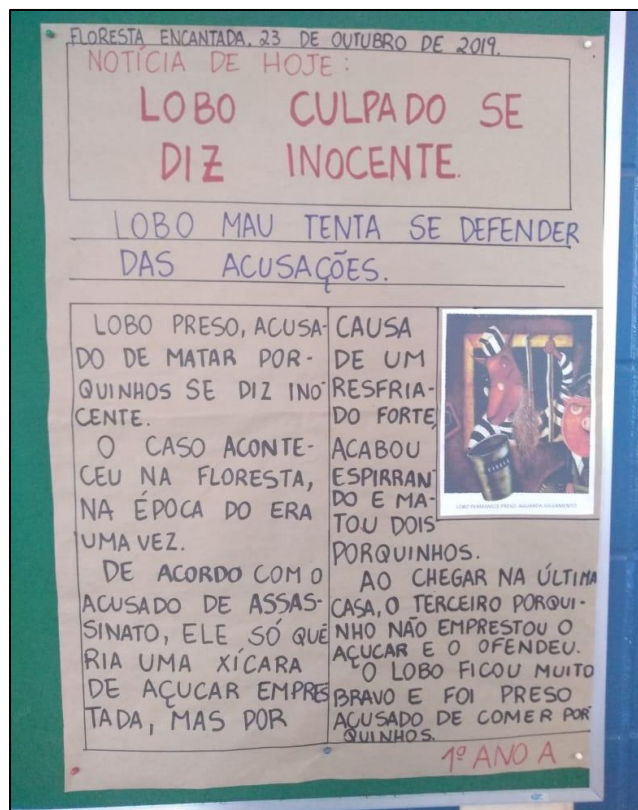 FLORESTA ENCANTADA, 23 DE OUTUBRO DE 2019.
NOTÍCIA DE HOJE:
LOBO CULPADO SE
DIZ INOCENTE.
LOBO MAU TENTA SE DEFENDER
DAS ACUSAÇÕES.
LOBO PRESO, ACUSA-
DO DE MATAR POR-
QUINHOS SE DIZ INO-
CENTE.
O CASO ACONTE-
CEU NA FLORESTA,
NA ÉPOCA DO ERA
UMA VEZ.
DE ACORDO COM O
ACUSADO DE ASSAS-
SINATO, ELE SÓ QUE
RIA UMA XÍCARA
DE AÇUCAR EMPRES
TADA, MAS POR
CAUSA
DE UM
RESFRIA-
DO FORTE,
ACABOU
ESPIRRAN
DO E MA-
TOU DOIS
PORQUINHOS.
AO CHEGAR NA ÚLTIMA
CASA, O TERCEIRO PORQUI-
NHO NÃO EMPRESTOU O
AÇUCAR E O OFENDEU.
O LOBO FICOU MUITO
BRAVO E FOI PRESO
ACUSADO DE COMER POR
QUINHOS.
LOBO PERMANECE PRESO AGUARDA JULGAMENTO
1º ANO A